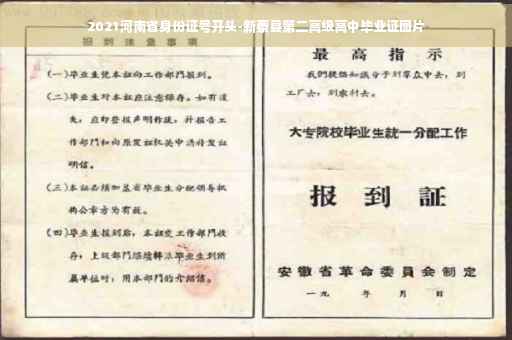 2021河南省身份证号开头-新蔡县第二高级高中毕业证图片
报到注意事项
(一)毕业生凭本证向工作部门报到。
(二)毕业生对本证应注意保存。如有遗
失,应即登报声明作废,并报告工
作部门和向原发证机关申请补发证
明信。
(三)本证必须加盖省毕业生分配领导机
构公章方为有效。
(四)毕业生报到后,本证交工作部门收
存;上级部门继续转派毕业生到所
属单位时,用本部门的介绍信。
最高指示
我们提倡知识分子到群众中去,到
工厂去,到农村去。
大专院校毕业生统一分配工作
报到証
安徽省革命委員会制定
一九 年 月 日